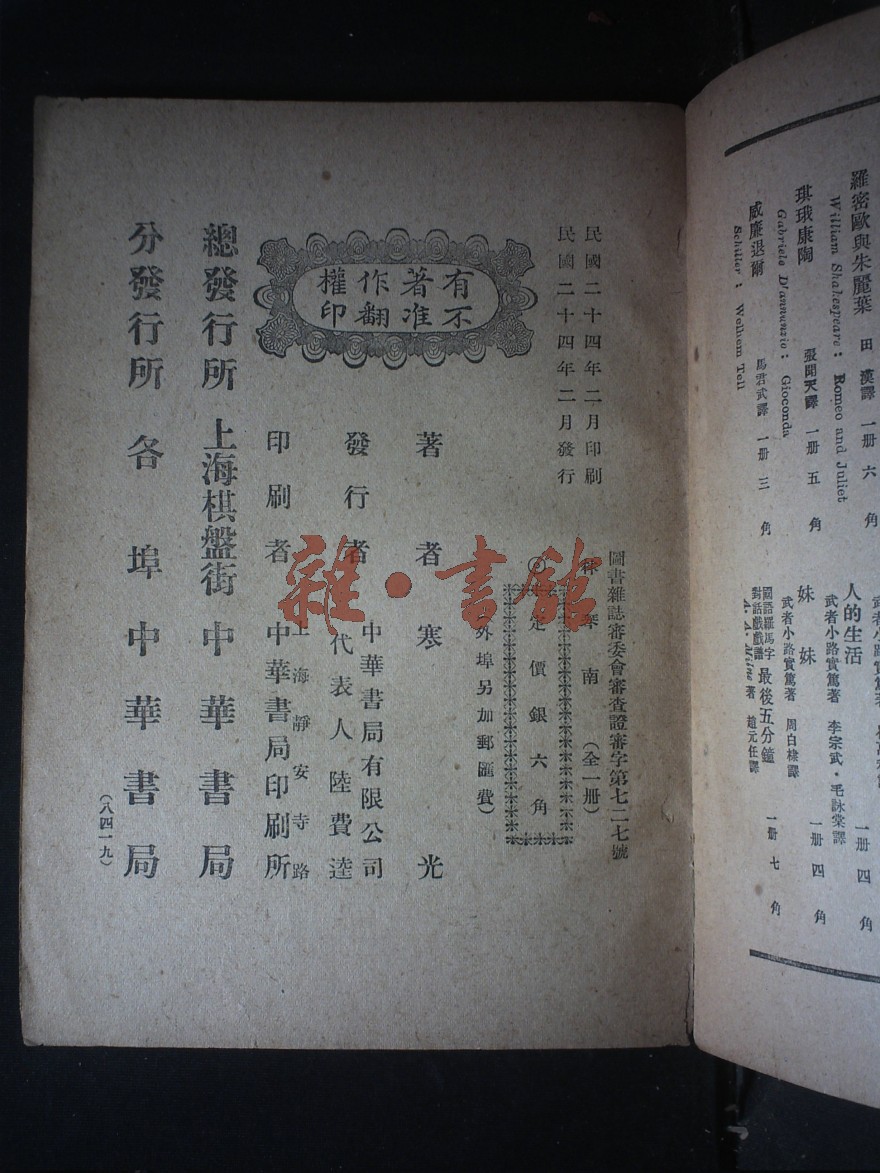 羅密歐與朱麗葉 田漢譯 一册六角
William Shakespeare: Romeo and Juliet
琪珴康陶 張聞天譯 一册五角
Gabriele D'annunzio: Gioconda
威廉退爾 馬君武譯 一册三角
Schiller: Welhem Tell
人的生活
武者小路實篤著 李宗武・毛詠棠譯 一册四角
妹妹
武者小路實篤著 周白棣譯 一册四角
國語羅馬字
對話戲戲譜 最後五分鐘
趙元任譯 一册七角
民國二十四年二月印刷
民國二十四年二月發行
有著作權
不准翻印
圖書雜誌審委會審查證審字第七二七號
林琴南(全一册)
◎定價銀六角
外埠另加郵匯費)
著者 寒光
發行者 中華書局有限公司
代表人 陸費逵
印刷者 上海靜安寺路
中華書局印刷所
總發行所 上海棋盤街 中華書局
分發行所 各埠中華書局
(八四一九)
雜・書館